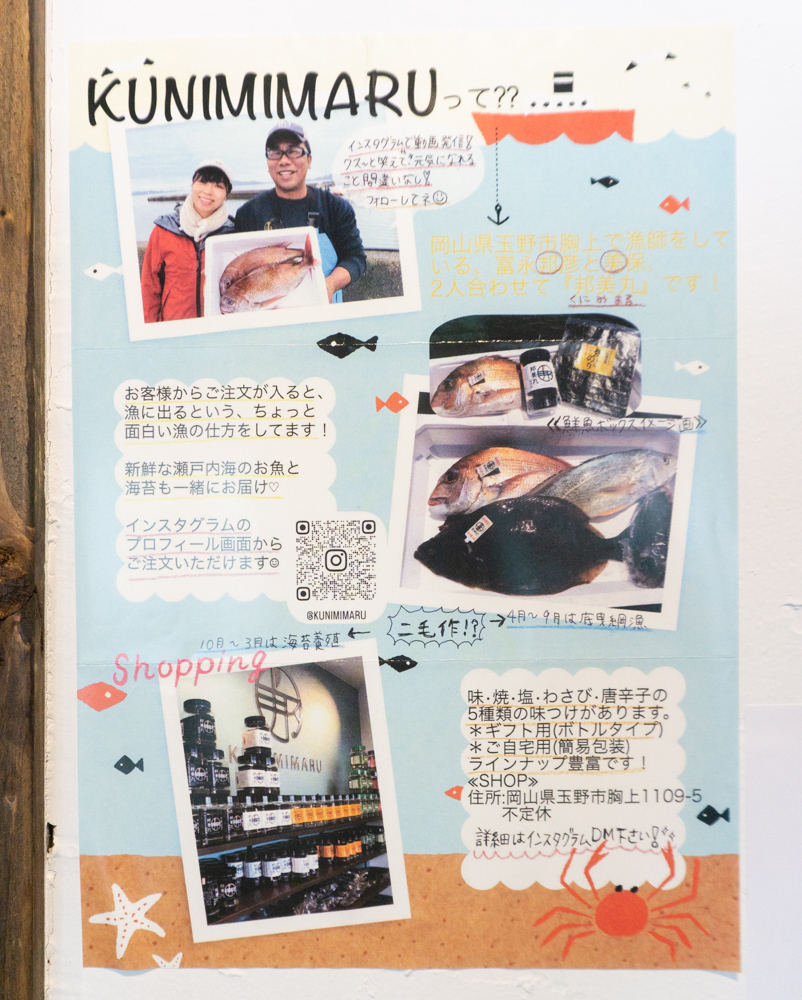 KUNIMIMARUって??
インスタグラムで動画発信!
クスッと笑えて元気になれる
こと間違いなし!
フォローしてネ☺
岡山県玉野市胸上で漁師をして
いる、富永邦彦と美保。
2人合わせて『邦美丸』です！
くにみまる
邦美丸
≪鮮魚ボックスイメージ画≫
お客様からご注文が入ると、
漁に出るという、ちょっと
面白い漁の仕方をしてます！
新鮮な瀬戸内海のお魚と
海苔も一緒にお届け♡
インスタグラムの
プロフィール画面から
ご注文いただけます☺
@KUNIMIMARU
二毛作!?
→4月〜9月は底曳網漁
10月〜3月は海苔養殖 ←
Shopping
KUNIMIMARU
味・焼・塩・わさび・唐辛子の
5種類の味つけがあります。
＊ギフト用(ボトルタイプ)
＊ご自宅用(簡易包装)
ラインナップ豊富です！
≪SHOP≫
住所:岡山県玉野市胸上1109-5
不定休
詳細はインスタグラムDM下さい!